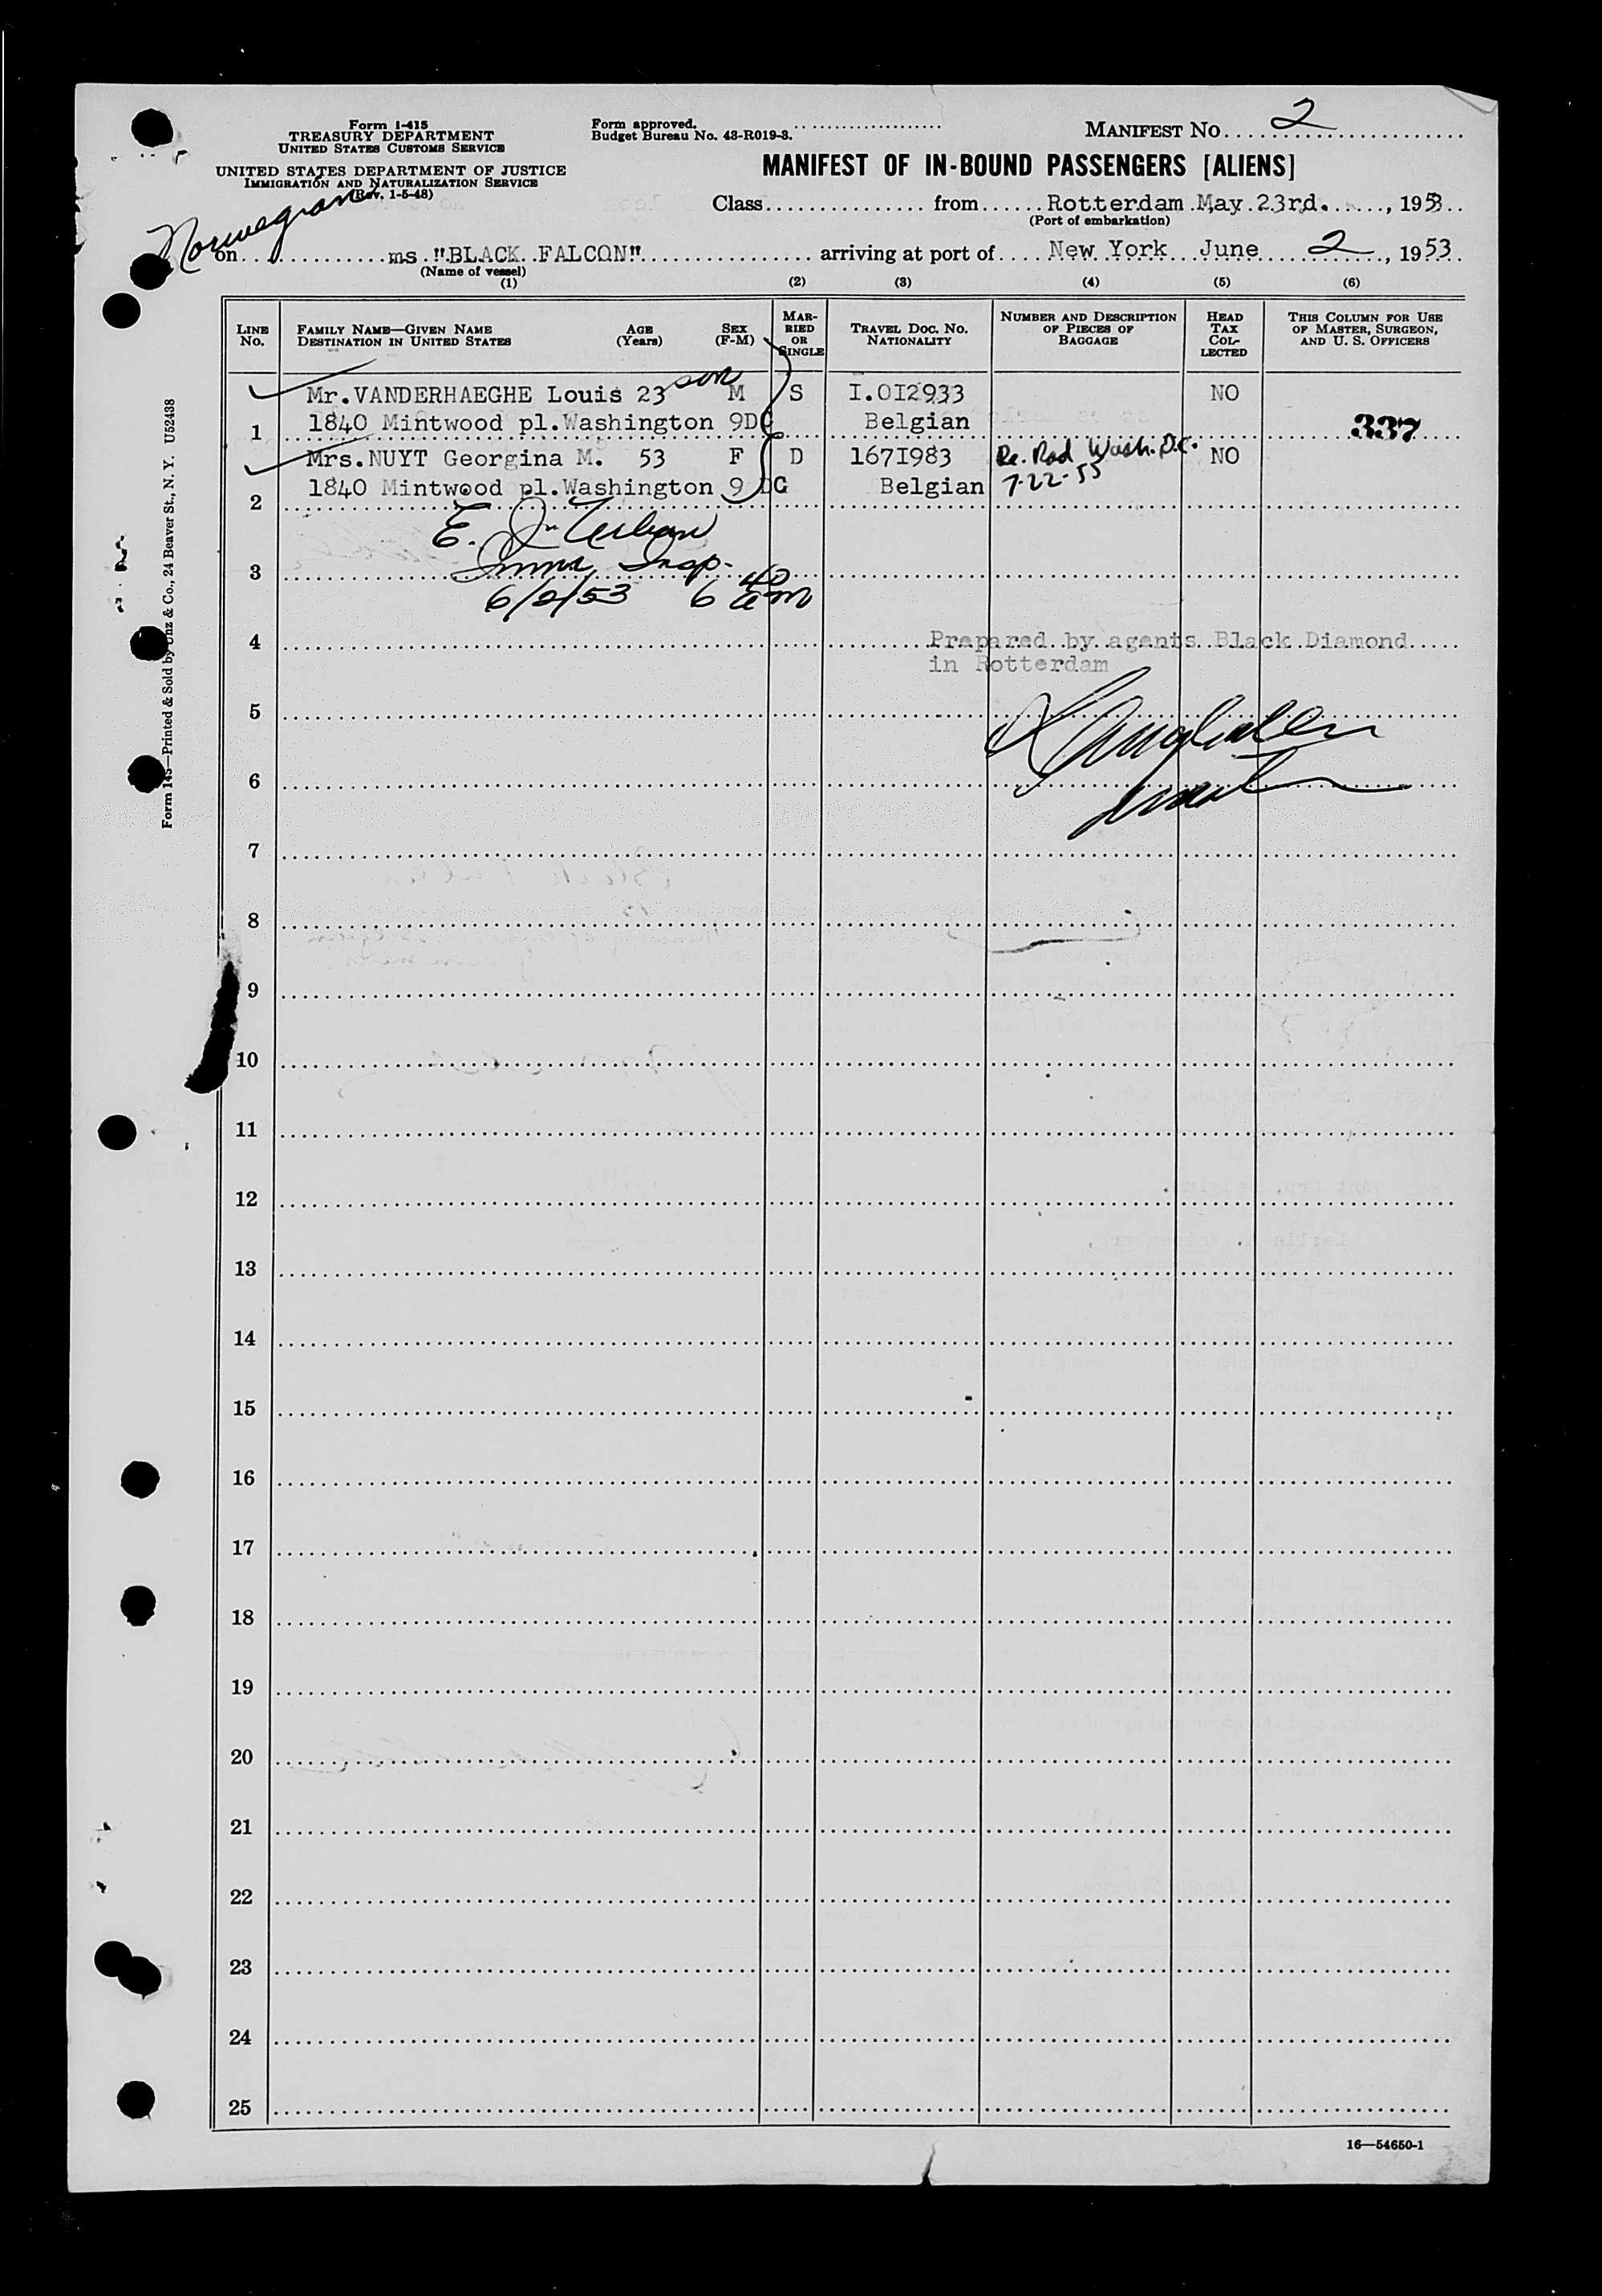 Form I-415
TREASURY DEPARTMENT
UNITED STATES CUSTOMS SERVICE
UNITED STATES DEPARTMENT OF JUSTICE
IMMIGRATION AND NATURALIZATION SERVICE
(Rev. 1-5-48)
Form approved.
Budget Bureau No. 43-R019-3.
MANIFEST NO. 2
MANIFEST OF IN-BOUND PASSENGERS [ALIENS]
Class from Rotterdam May 23rd. , 1953
(Port of embarkation)
Norwegian
on ms "BLACK FALCON" arriving at port of New York June 2 , 1953
(Name of vessel)
(1) (2) (3) (4) (5) (6)
LINE NO. FAMILY NAME—GIVEN NAME DESTINATION IN UNITED STATES AGE (Years) SEX (F-M) MARRIED OR SINGLE TRAVEL DOC. NO. NATIONALITY NUMBER AND DESCRIPTION OF PIECES OF BAGGAGE HEAD TAX COLLECTED THIS COLUMN FOR USE OF MASTER, SURGEON, AND U. S. OFFICERS
Mr.VANDERHAEGHE Louis 23 son M S I.OI2933 NO
1 1840 Mintwood pl.Washington 9DC Belgian 337
Mrs.NUYT Georgina M. 53 F D 167I983 Re. Rad Wash. D.C. NO
2 1840 Mintwood pl.Washington 9 DC Belgian 7-22-55
E.
3 Imm Insp.
6/2/53 6 40 am
4 Prepared by agents Black Diamond
in Rotterdam
5
6
7
8
9
10
11
12
13
14
15
16
17
18
19
20
21
22
23
24
25
16—54650-1
Form 145—Printed & Sold by Unz & Co., 24 Beaver St., N. Y. U52438